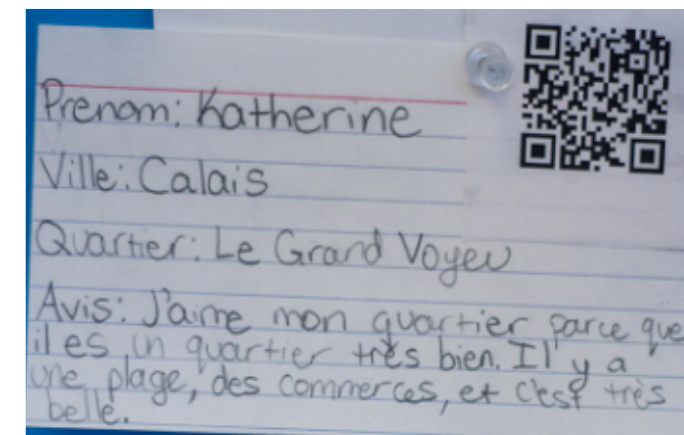 Prenom: Katherine
Ville: Calais
Quartier: Le Grand Voyeu
Avis: J'aime mon quartier parce que
il es un quartier très bien. Il'y a
une plage, des commerces, et c'est très
belle.